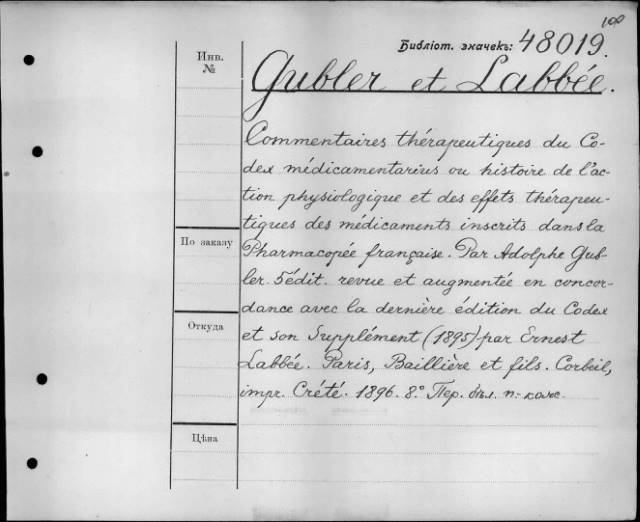 100
Библіот. значекъ: 48019.
Инв.
№
Gubler et Labbée.
Commentaires thérapeutiques du Co-
dex médicamentarius ou histoire de l'ac
tion physiologique et des effets thérapeu-
tiques des médicaments inscrits dans la
По заказу
Pharmacopée française. Par Adolphe Gub-
ler. 5 édit. revue et augmentée en concor-
dance avec la dernière édition du Codex
Откуда
et son Supplément (1895) par Ernest
Labbée. Paris, Baillière et fils. Corbeil,
impr. Crété. 1896. 8.° Пер. п.
Цѣна